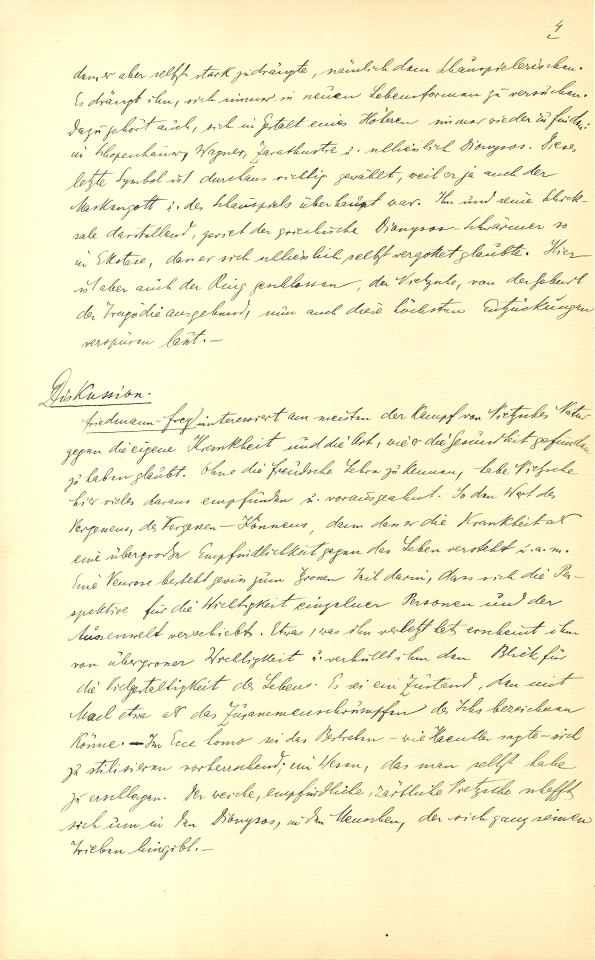 4
dem er aber selbst stark zudrängte, nämlich dem Schauspielerischen.
Es drängt ihn, sich immer in neuen Lebensformen zu versuchen.
Dazu gehört auch, sich in Gestalt eines Höheren immer wieder zu finden:
in Schopenhauer, Wagner, Zarathustra u. schliesslich Dionysos. Dieses
letzte Symbol ist durchaus richtig gewählt, weil er ja auch der
Maskengott u. des Schauspiels überhaupt war. Ihn und seine Schick-
sale darstellend, geriet der griechische Dionysos-Schwärmer so
in Ekstase, dass er sich schliesslich selbst vergottet glaubte. Hier
ist aber auch der Ring geschlossen, der Nietzsche, von der Geburt
der Tragödie ausgehend, nun auch diese höchsten Entzückungen
verspüren lässt.—
Diskussion.
Friedmann-Frey interessiert am meisten der Kampf von Nietzsches Natur
gegen die eigene Krankheit und die Art, wie er die Gesundheit gefunden
zu haben glaubt. Ohne die Freudsche Lehre zu kennen, habe Nietzsche
hier vieles daraus empfunden u. vorausgeahnt. So den Wert des
Vergessens, des Vergessen-Könnens, dann dass er die Krankheit als
eine übergrosse Empfindlichkeit gegen das Leben versteht u. a. m.
Eine Neurose besteht gewiss zum grossen Teil darin, dass sich die Per-
spektive für die Wichtigkeit einzelner Personen und der
Aussenwelt verschiebt. Etwas, was ihn verletzt hat, erscheint ihm
von übergrosser Wichtigkeit u. verhüllt ihm den Blick für
die Vielgestaltigkeit des Lebens. Es sei ein Zustand, den man mit
Mach etwa als das Zusammenschrumpfen des Ichs bezeichnen
könne. — Im Ecce homo sei das Bestreben — wie Haeutler sagte — sich
zu stilisieren vorherrschend; ein Wesen, das man selbst habe
zu erschleigen. Der weiche, empfindliche, zärtliche Nietzsche schafft
sich um in den Dionysos, in den Menschen, der sich ganz seinen
Trieben hingibt.—